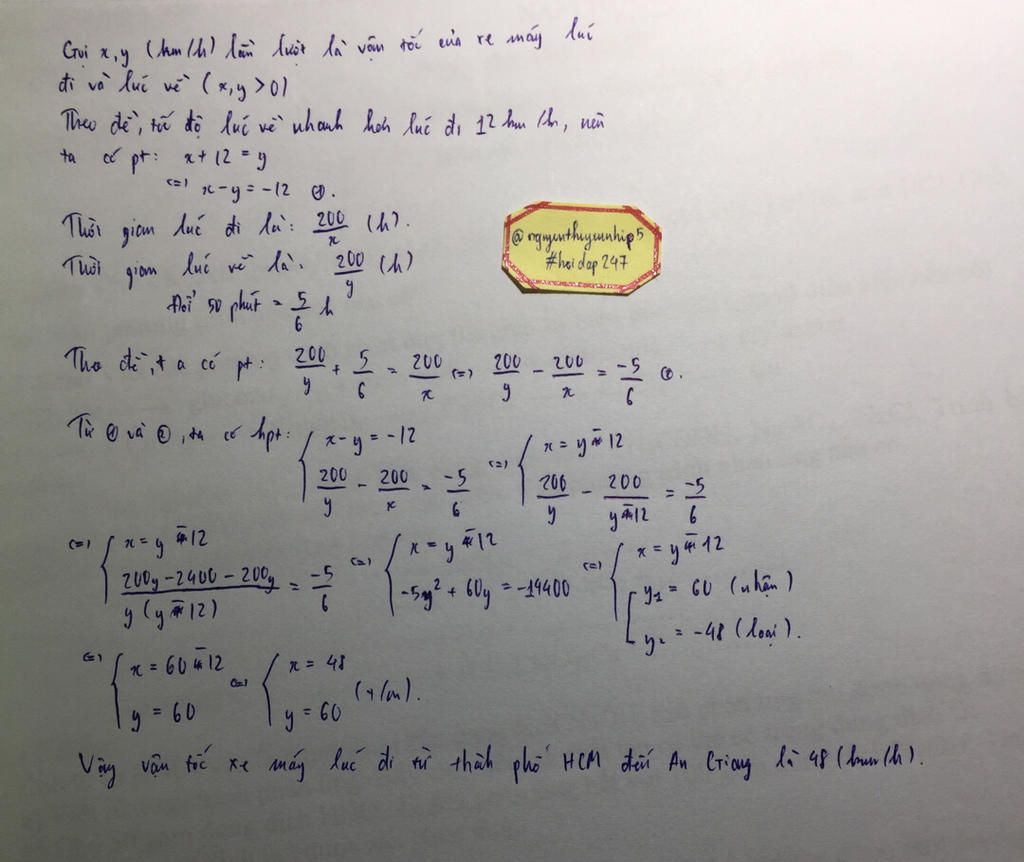 Gọi x, y (km/h) lần lượt là vận tốc của xe máy lúc
đi và lúc về (x, y > 0)
Theo đề, tốc độ lúc về nhanh hơn lúc đi 12 km/h, nên
ta có pt: x + 12 = y
<=> x - y = -12 ①.
Thời gian lúc đi là: 200/x (h).
Thời gian lúc về là: 200/y (h)
@nguyenthuyennhip5
#hoidap247
Đổi 50 phút = 5/6 h
Theo đề, ta có pt: 200/y + 5/6 = 200/x <=> 200/y - 200/x = -5/6 ②.
Từ ① và ②, ta có hpt: { x - y = -12 ; 200/y - 200/x = -5/6 <=> { x = y - 12 ; 200/y - 200/(y - 12) = -5/6
<=> { x = y - 12 ; (200y - 2400 - 200y)/(y(y - 12)) = -5/6 <=> { x = y - 12 ; -5y² + 60y = -14400 <=> { x = y - 12 ; [ y₁ = 60 (nhận) ; y₂ = -48 (loại).
<=> { x = 60 - 12 ; y = 60 <=> { x = 48 ; y = 60 (t/m).
Vậy vận tốc xe máy lúc đi từ thành phố HCM đến An Giang là 48 (km/h).